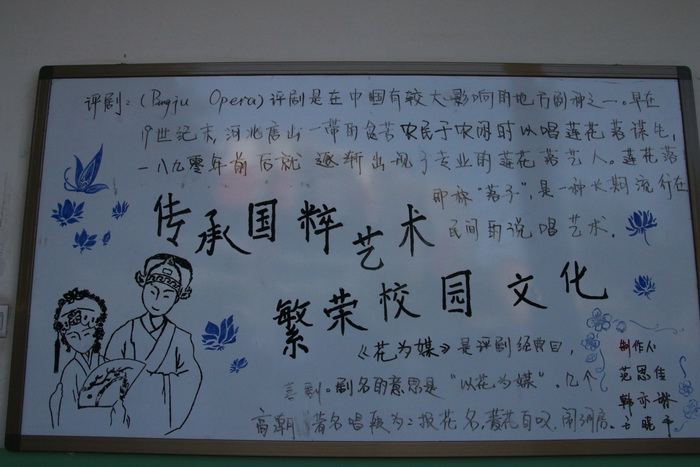 评剧：(Pingju Opera)评剧是在中国有较大影响的地方剧种之一。早在
19世纪末，河北唐山一带的贫苦农民于农闲时以唱莲花落谋生，
一八九零年前后就逐渐出现了专业的莲花落艺人。莲花落
即称“落子”，是一种长期流行在
民间的说唱艺术。
传承国粹艺术
繁荣校园文化
《花为媒》是评剧经典目，
喜剧。剧名的意思是“以花为媒”。几个
高潮 著名唱段为：报花名，菊花自叹，闹洞房。
制作人
范思佳
韩亦
晓平